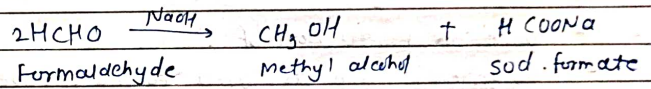 2HCHO NaOH → CH₃ OH + H COONa
Formaldehyde Methyl alcohol sod. formate